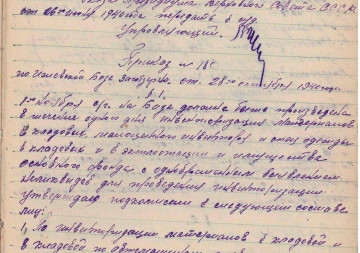 Указа Президиума Верховного Совета СССР
от 26 июня 1940 года передать в суд.
Управляющий
Приказ № 185
по Ижевской Базе Заготзерна от 28 октября 1940 года
§ 1.
1го Ноября с/г. на Базе должна быть произведена
в течение одного дня инвентаризация материалов
в кладовке, малоценного инвентаря и спец. одежды
в кладовой и в эксплоатации и имущества
основного фонда с одновременным выявлением
неликвидов для проведения инвентаризации
утверждаю подкомиссии в следующем составе
лиц:
1, По инвентаризации материалов в кладовой и
в кладовой по